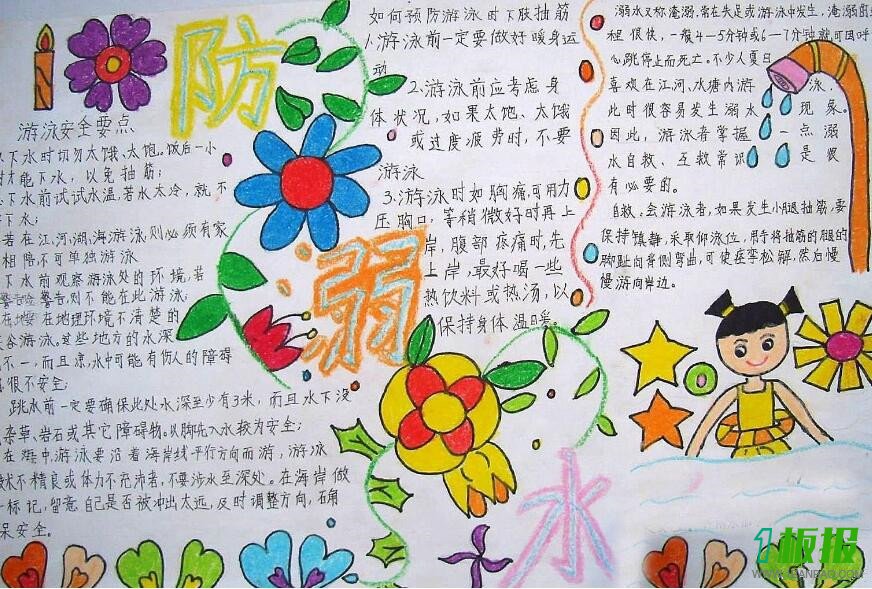 防
弱
水
游泳安全要点
下水时切勿太饿、太饱。饭后一小
时才能下水，以免抽筋；
下水前试试水温，若水太冷，就不
下水；
若在江、河、湖、海游泳，则必须有家
相陪不可单独游泳
下水前观察游泳处的环境，若
警告，则不能在此游泳；
在地理环境不清楚的
谷游泳。这些地方的水深
不一，而且凉，水中可能有伤人的障碍
很不安全；
跳水前一定要确保此处水深至少有3米，而且水下没
杂草、岩石或其它障碍物。以脚先入水较为安全；
在海中游泳要沿着海岸线平行方向而游，游泳
术不精良或体力不充沛者，不要涉水至深处。在海岸做
一标记，留意自己是否被冲出太远，及时调整方向，确
保安全。
如何预防游泳时下肢抽筋
1.游泳前一定要做好暖身运
动
2.游泳前应考虑身
体状况，如果太饱、太饿
或过度疲劳时，不要
游泳
3.游泳时如胸痛，可用力
压胸口，等稍微好时再上
岸，腹部疼痛时，先
上岸，最好喝一些
热饮料或热汤，以
保持身体温暖。
溺水又称淹溺，常在失足或游泳中发生，淹溺的
程很快，一般4-5分钟或6-7分钟就可因呼
心跳停止而死亡。不少人夏日
喜欢在江河、水塘内游泳，
此时很容易发生溺水现象。
因此，游泳者掌握一点溺
水自救、互救常识是很
有必要的。
自救。会游泳者，如果发生小腿抽筋，要
保持镇静，采取仰泳位，用手将抽筋的腿的
脚趾向背侧弯曲，可使痉挛松解，然后慢
慢游向岸边。
1板报